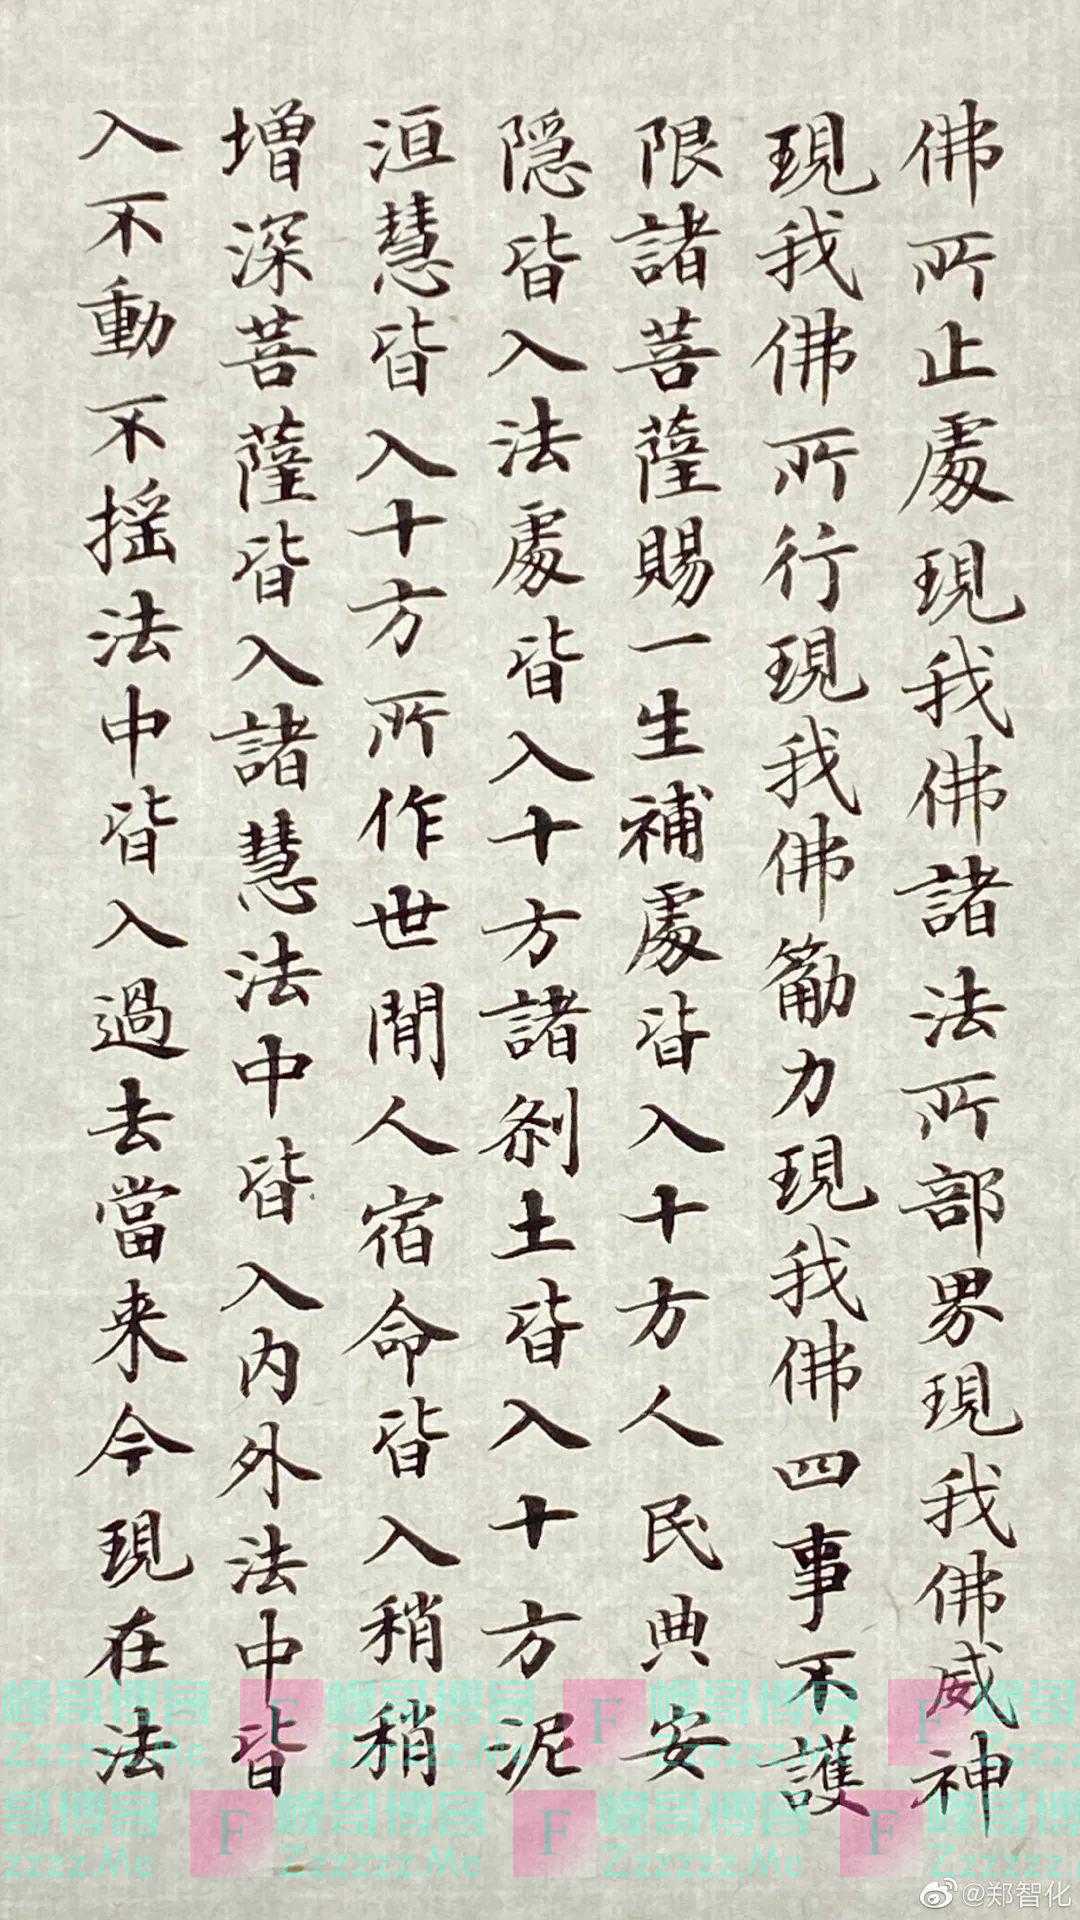 佛所止處現我佛諸法所部界現我佛威神
現我佛所行現我佛筋力現我佛四事不護
限諸菩薩賜一生補處皆入十方人民典安
隱皆入法處皆入十方諸刹土皆入十方泥
洹慧皆入十方所作世間人宿命皆入稍稍
增深菩薩皆入諸慧法中皆入内外法中皆
入不動不摇法中皆入過去當来今現在法
F
F
F
F
F
F
Zzzzz.Me
Zzzzz.Me
Zzzzz.Me
@郑智化